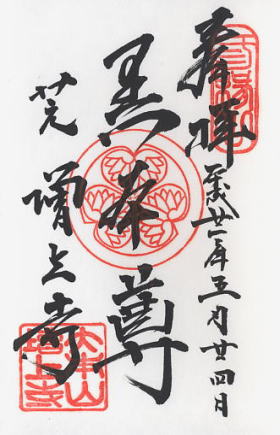 奉拝
平成廿一年五月廿四日
黒本尊
芝
増上寺
三縁山
大本山
増上寺